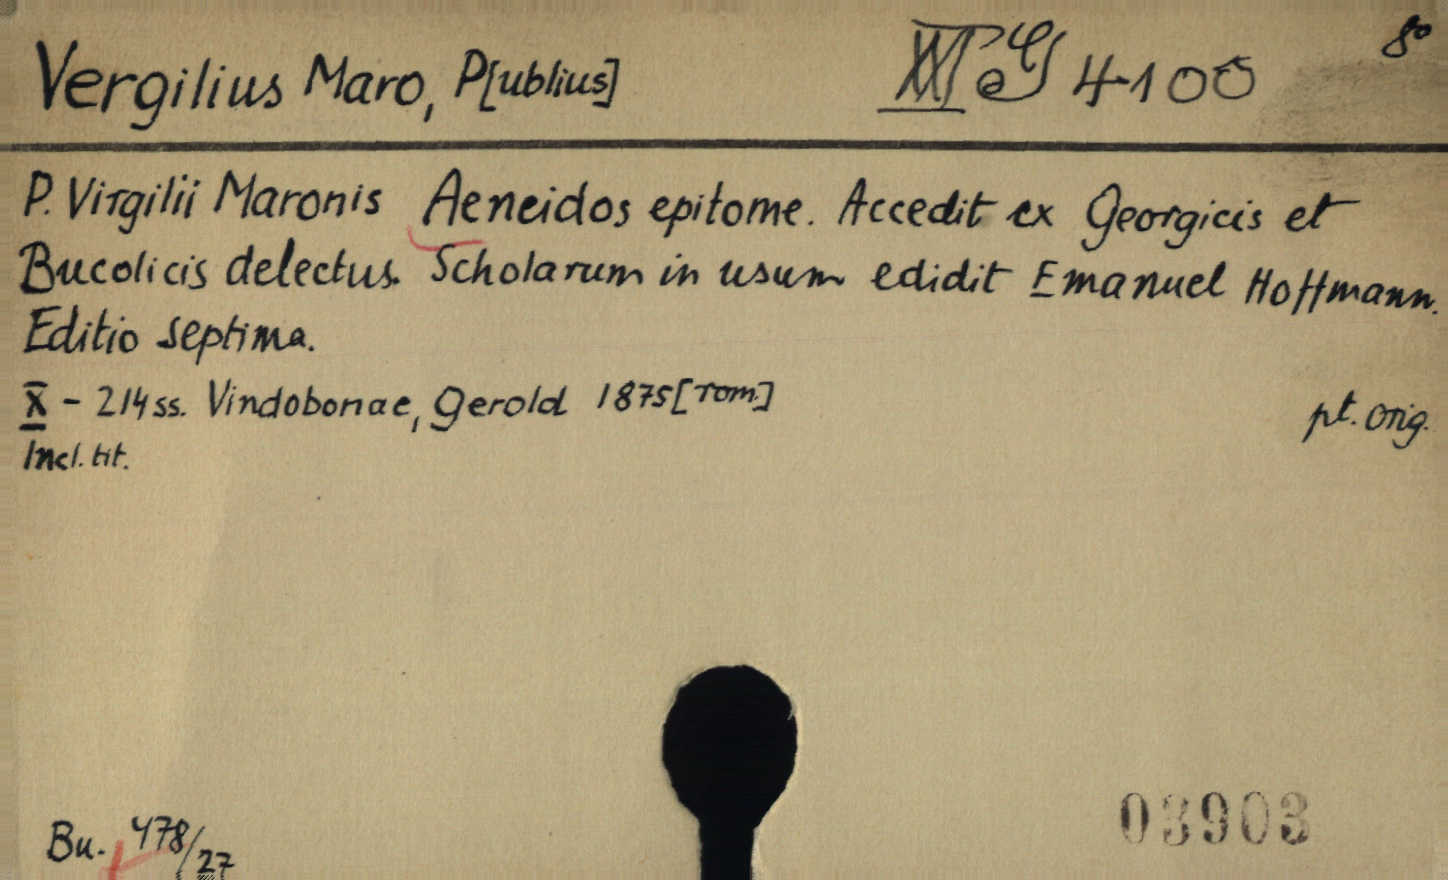 Vergilius Maro, P[ublius]
4100
8°
P. Virgilii Maronis Aeneidos epitome. Accedit ex Georgicis et
Bucolicis delectus. Scholarum in usum edidit Emanuel Hoffmann.
Editio septima.
X - 214 ss. Vindobonae, Gerold 1875 [rom.]
pt. orig.
Incl. tit.
03903
Bu. 478/27